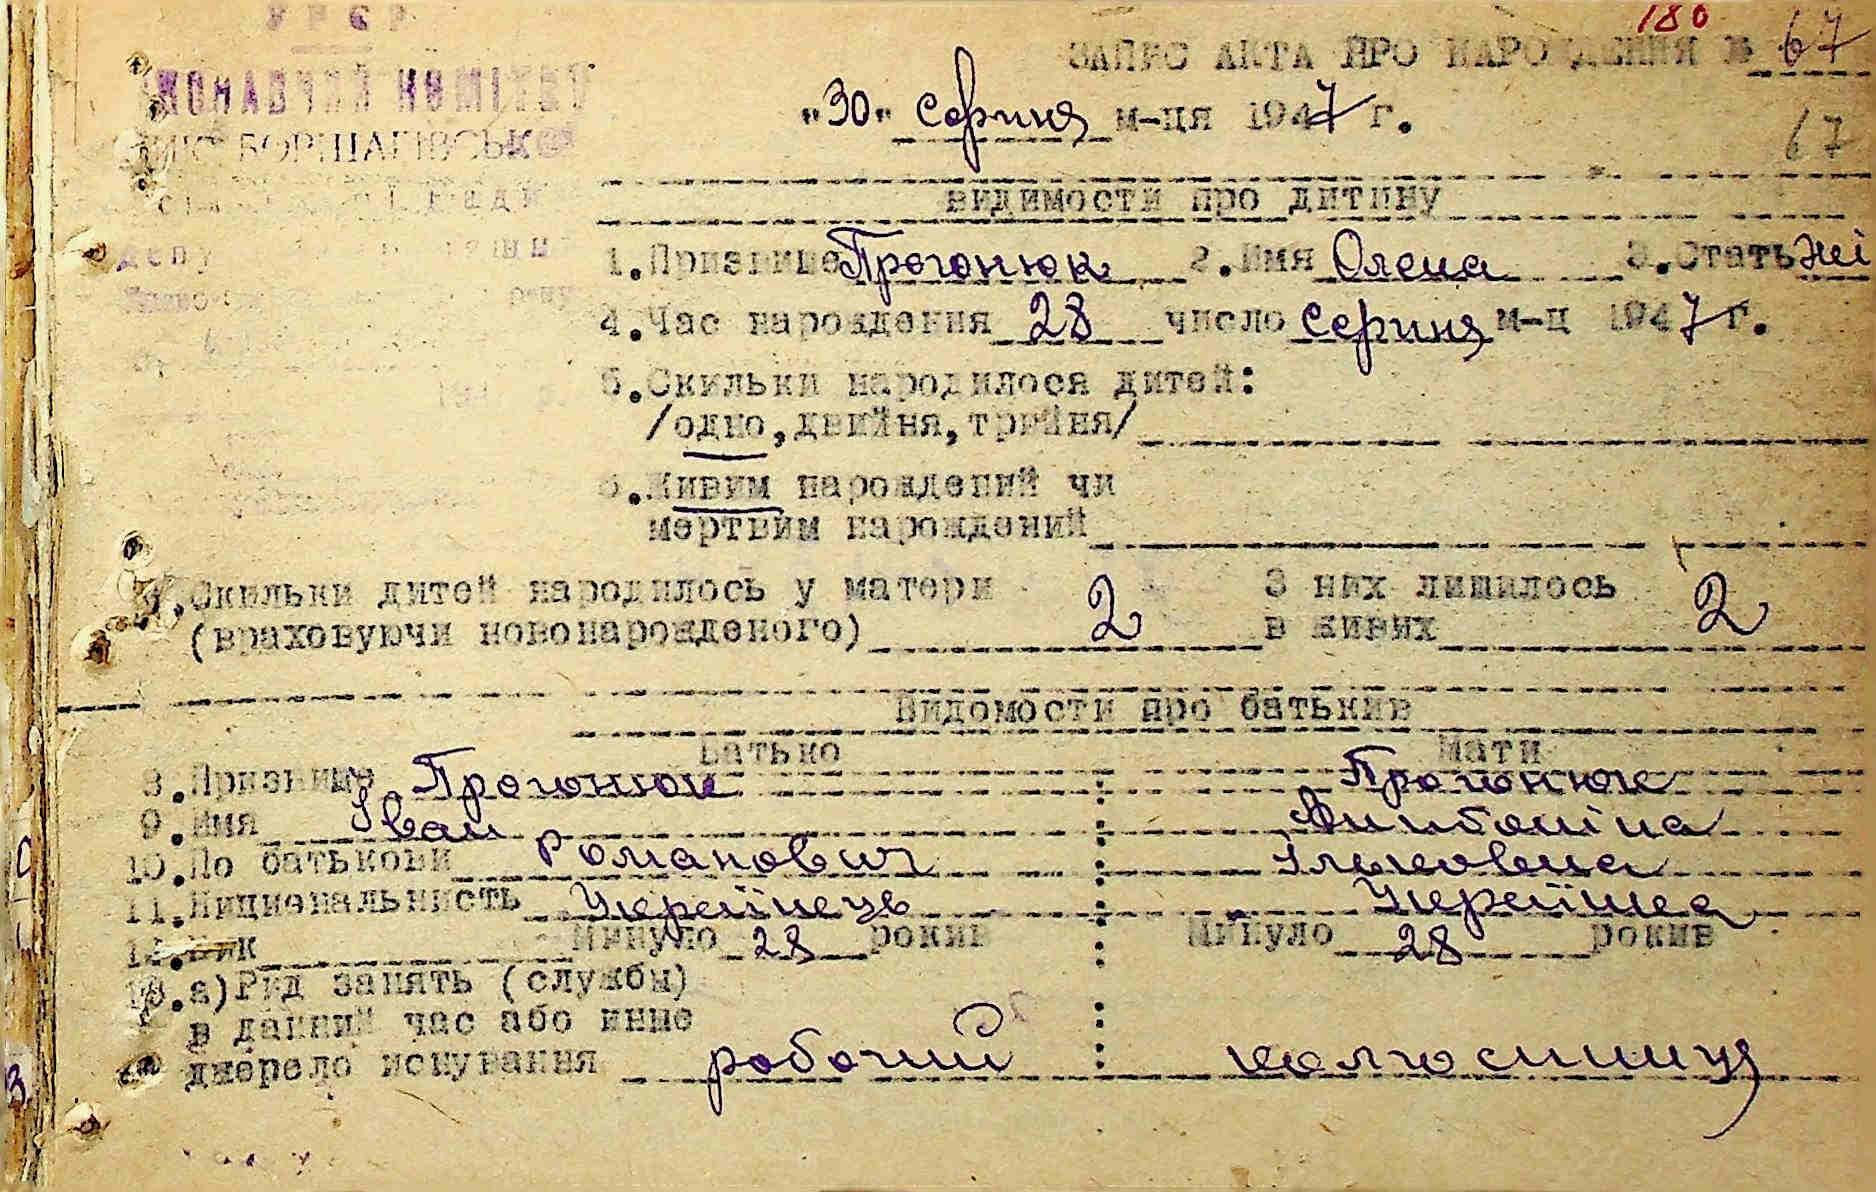 УРСР
180
ЗАПИС АКТА ПРО НАРОЖДЕННЯ № 67
"30" серпня м-ця 1947 г.
67
видимости про дитину
1.Призвище Прогонюк 2.Имя Олена 3.Стать жі
4.Час нарождення 28 число серпня м-ц 1947 г.
5.Скильки народилося дитей:
/одно,двийня,трийня/
6.Живим нарождений чи
мертвим нарождений
7.Скильки дитей народилось у матери 2 З них лишилось 2
(враховуючи новонарожденого) в живих
Видомости про батькив
Батько Мати
8.Призвище Прогонюк Прогонюк
9.Имя Іван
10.По батькови Романович Ільковна
11.Нициональнисть Українець Українка
12.Вик Минуло 28 рокив Минуло 28 рокив
13.а)Рид занять (службы)
в данний час або инше
джерело иснування робочий колгоспниця